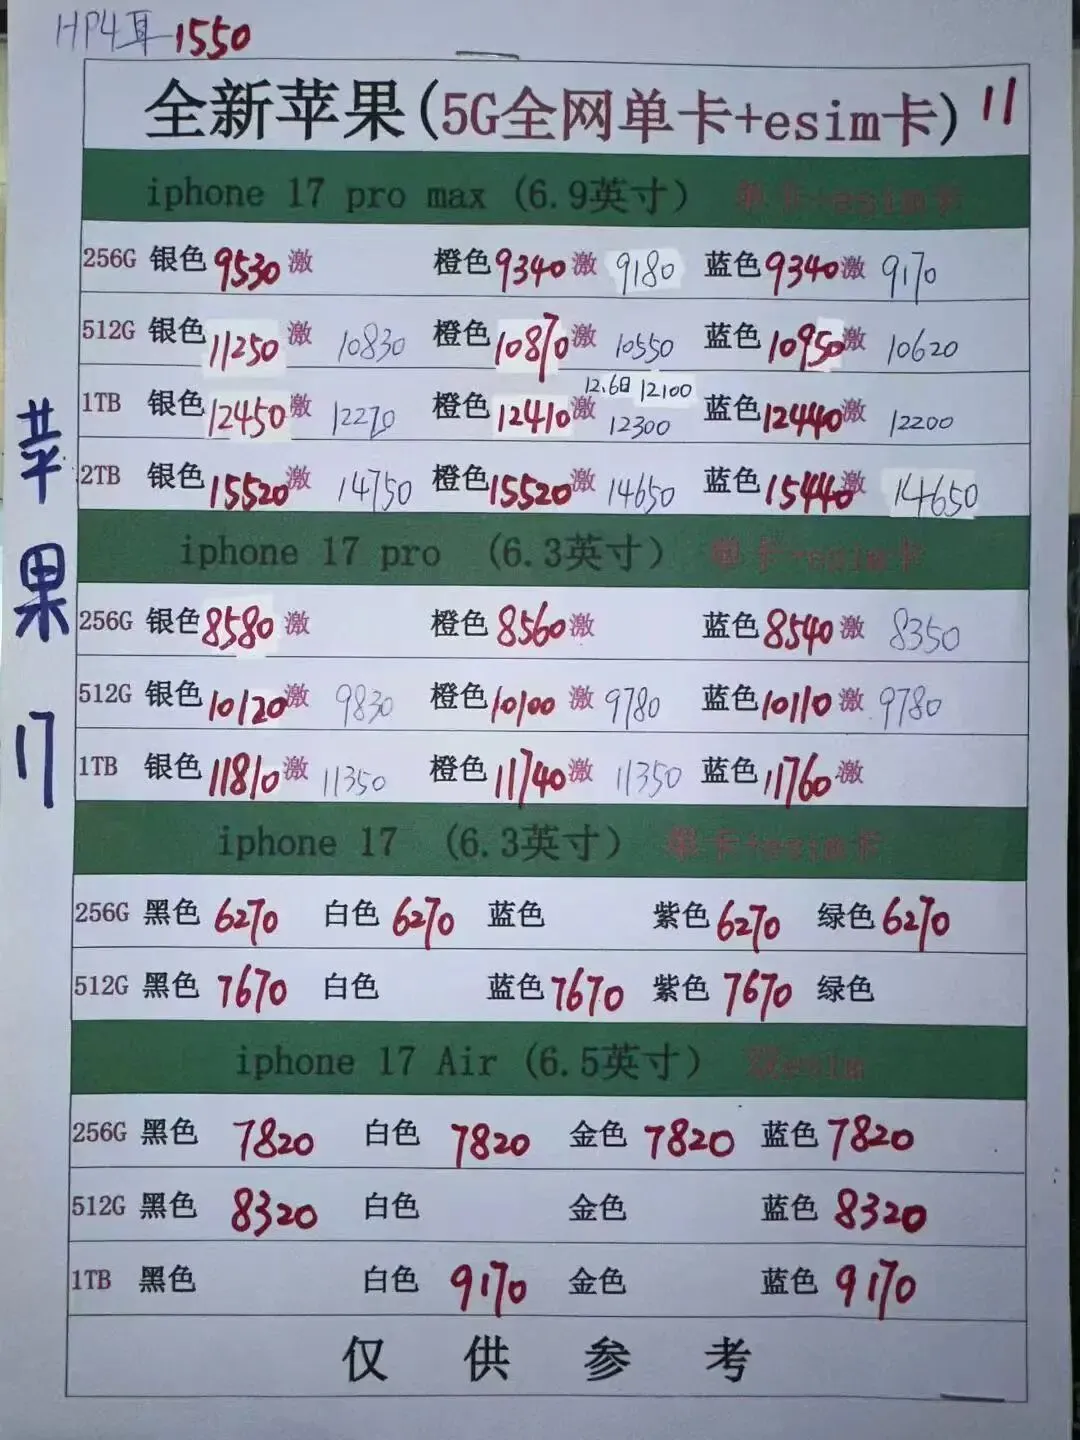 HP4耳 1550
全新苹果(5G全网单卡+esim卡) 11
iphone 17 pro max (6.9英寸) 单卡+esim卡
256G 银色 9530 激 橙色 9340 激 9180 蓝色 9340 激 9170
512G 银色 11250 激 10830 橙色 10870 激 10550 蓝色 10950 激 10620
12.6日 12100
1TB 银色 12450 激 12270 橙色 12410 激 12300 蓝色 12440 激 12200
2TB 银色 15520 激 14750 橙色 15520 激 14650 蓝色 15440 激 14650
苹果17
iphone 17 pro (6.3英寸) 单卡+esim卡
256G 银色 8580 激 橙色 8560 激 蓝色 8540 激 8350
512G 银色 10120 激 9830 橙色 10100 激 9780 蓝色 10110 激 9780
1TB 银色 11810 激 11350 橙色 11740 激 11350 蓝色 11760 激
iphone 17 (6.3英寸) 单卡+esim卡
256G 黑色 6270 白色 6270 蓝色 紫色 6270 绿色 6270
512G 黑色 7670 白色 蓝色 7670 紫色 7670 绿色
iphone 17 Air (6.5英寸) 双esim
256G 黑色 7820 白色 7820 金色 7820 蓝色 7820
512G 黑色 8320 白色 金色 蓝色 8320
1TB 黑色 白色 9170 金色 蓝色 9170
仅供参考